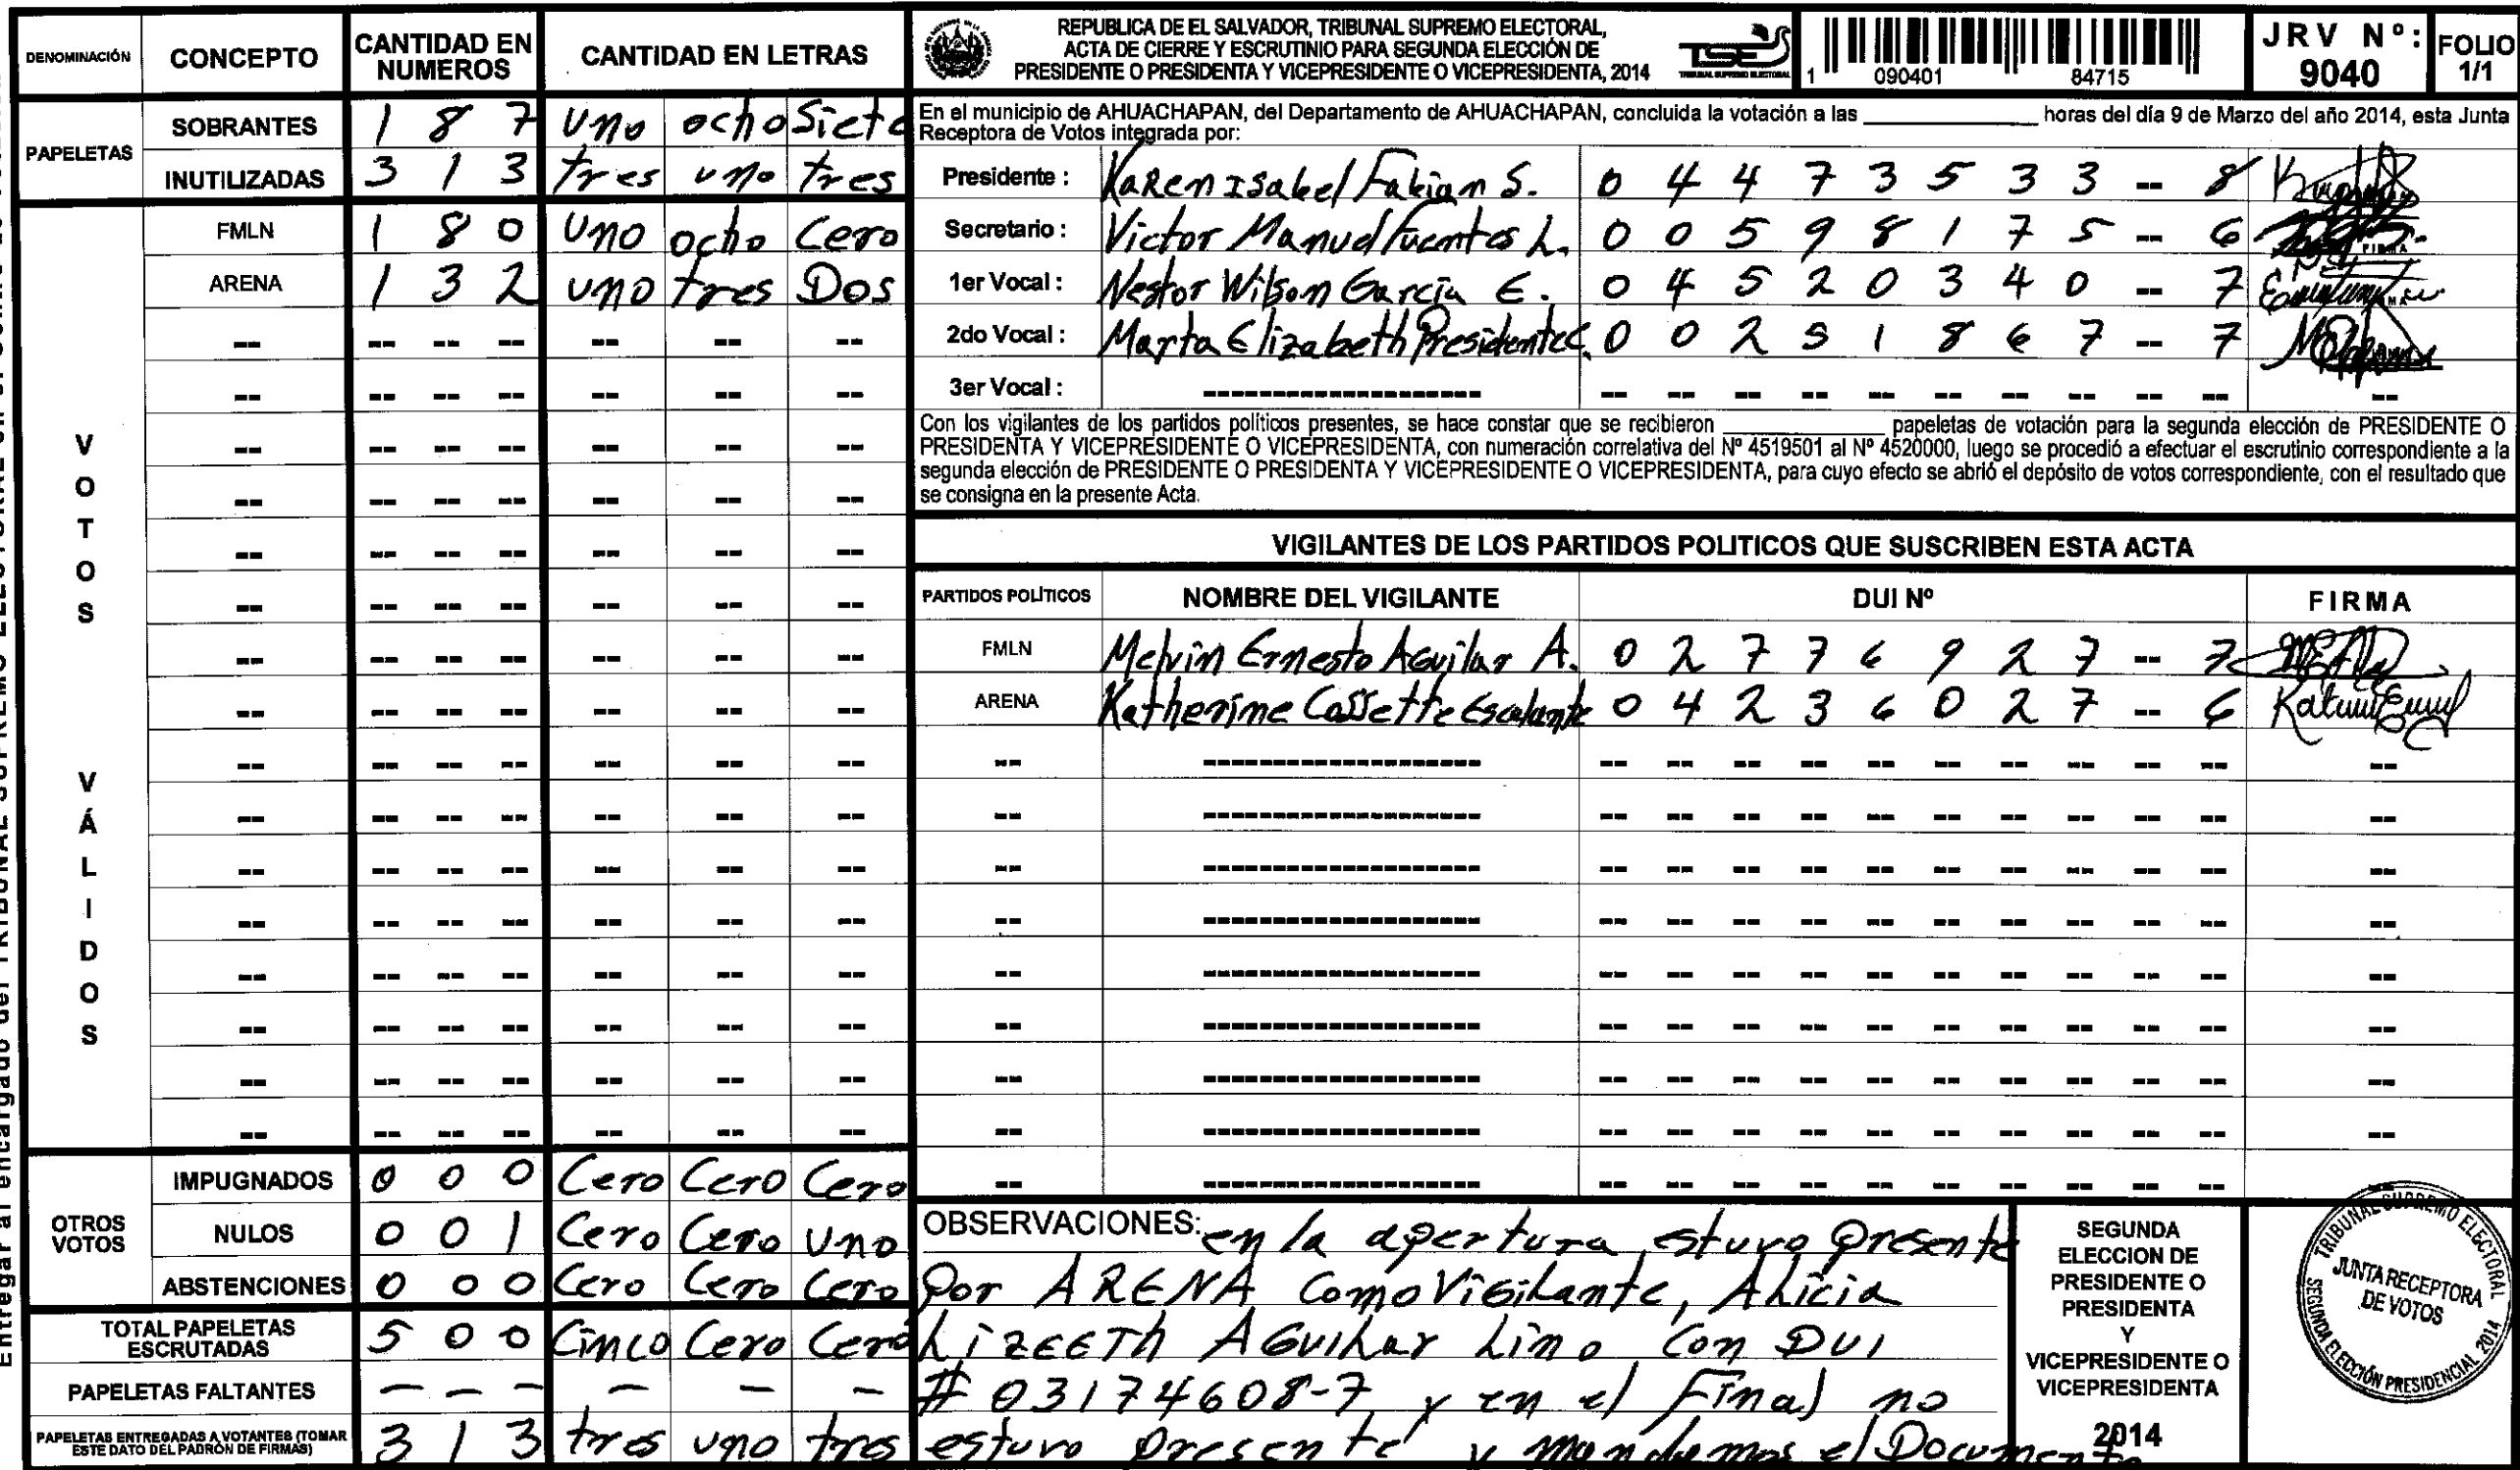 DENOMINACIÓN CONCEPTO CANTIDAD EN NUMEROS CANTIDAD EN LETRAS
PAPELETAS
SOBRANTES 1 8 7 Uno ocho Siete
INUTILIZADAS 3 1 3 tres uno tres
VOTOS VÁLIDOS
FMLN 1 8 0 Uno ocho Cero
ARENA 1 3 2 uno tres Dos
OTROS VOTOS
IMPUGNADOS 0 0 0 Cero Cero Cero
NULOS 0 0 1 Cero Cero Uno
ABSTENCIONES 0 0 0 Cero Cero Cero
TOTAL PAPELETAS ESCRUTADAS 5 0 0 Cinco Cero Cero
PAPELETAS FALTANTES — — — — — —
PAPELETAS ENTREGADAS A VOTANTES (TOMAR ESTE DATO DEL PADRÓN DE FIRMAS) 3 1 3 tres uno tres
REPUBLICA DE EL SALVADOR, TRIBUNAL SUPREMO ELECTORAL,
ACTA DE CIERRE Y ESCRUTINIO PARA SEGUNDA ELECCIÓN DE
PRESIDENTE O PRESIDENTA Y VICEPRESIDENTE O VICEPRESIDENTA, 2014
TSE
TRIBUNAL SUPREMO ELECTORAL
1 090401 84715
JRV Nº: 9040
FOLIO 1/1
En el municipio de AHUACHAPAN, del Departamento de AHUACHAPAN, concluida la votación a las ____ horas del día 9 de Marzo del año 2014, esta Junta
Receptora de Votos integrada por:
Presidente : Karen Isabel Fabian S. 0 4 4 7 3 5 3 3 -- 8
Secretario : Victor Manuel Fuentes L. 0 0 5 9 8 1 7 5 -- 6
1er Vocal : Nestor Wilson García E. 0 4 5 2 0 3 4 0 -- 7
2do Vocal : Marta Elizabeth Presidente C. 0 0 2 5 1 8 6 7 -- 7
3er Vocal :
Con los vigilantes de los partidos políticos presentes, se hace constar que se recibieron ____ papeletas de votación para la segunda elección de PRESIDENTE O
PRESIDENTA Y VICEPRESIDENTE O VICEPRESIDENTA, con numeración correlativa del Nº 4519501 al Nº 4520000, luego se procedió a efectuar el escrutinio correspondiente a la
segunda elección de PRESIDENTE O PRESIDENTA Y VICEPRESIDENTE O VICEPRESIDENTA, para cuyo efecto se abrió el depósito de votos correspondiente, con el resultado que
se consigna en la presente Acta.
VIGILANTES DE LOS PARTIDOS POLITICOS QUE SUSCRIBEN ESTA ACTA
PARTIDOS POLÍTICOS NOMBRE DEL VIGILANTE DUI Nº FIRMA
FMLN Melvin Ernesto Aguilar A. 0 2 7 7 6 9 2 7 -- 7
ARENA Katherine Cossette Escalante 0 4 2 3 6 0 2 7 -- 6
OBSERVACIONES: en la apertura estuvo presente
por ARENA como Vigilante, Alicia
Lizeeth Aguilar Lino con DUI
# 03174608-7 y en el Final no
estuvo presente y mandamos el Documento
SEGUNDA
ELECCION DE
PRESIDENTE O
PRESIDENTA
Y
VICEPRESIDENTE O
VICEPRESIDENTA
2014
TRIBUNAL SUPREMO ELECTORAL
JUNTA RECEPTORA
DE VOTOS
SEGUNDA ELECCIÓN PRESIDENCIAL 2014